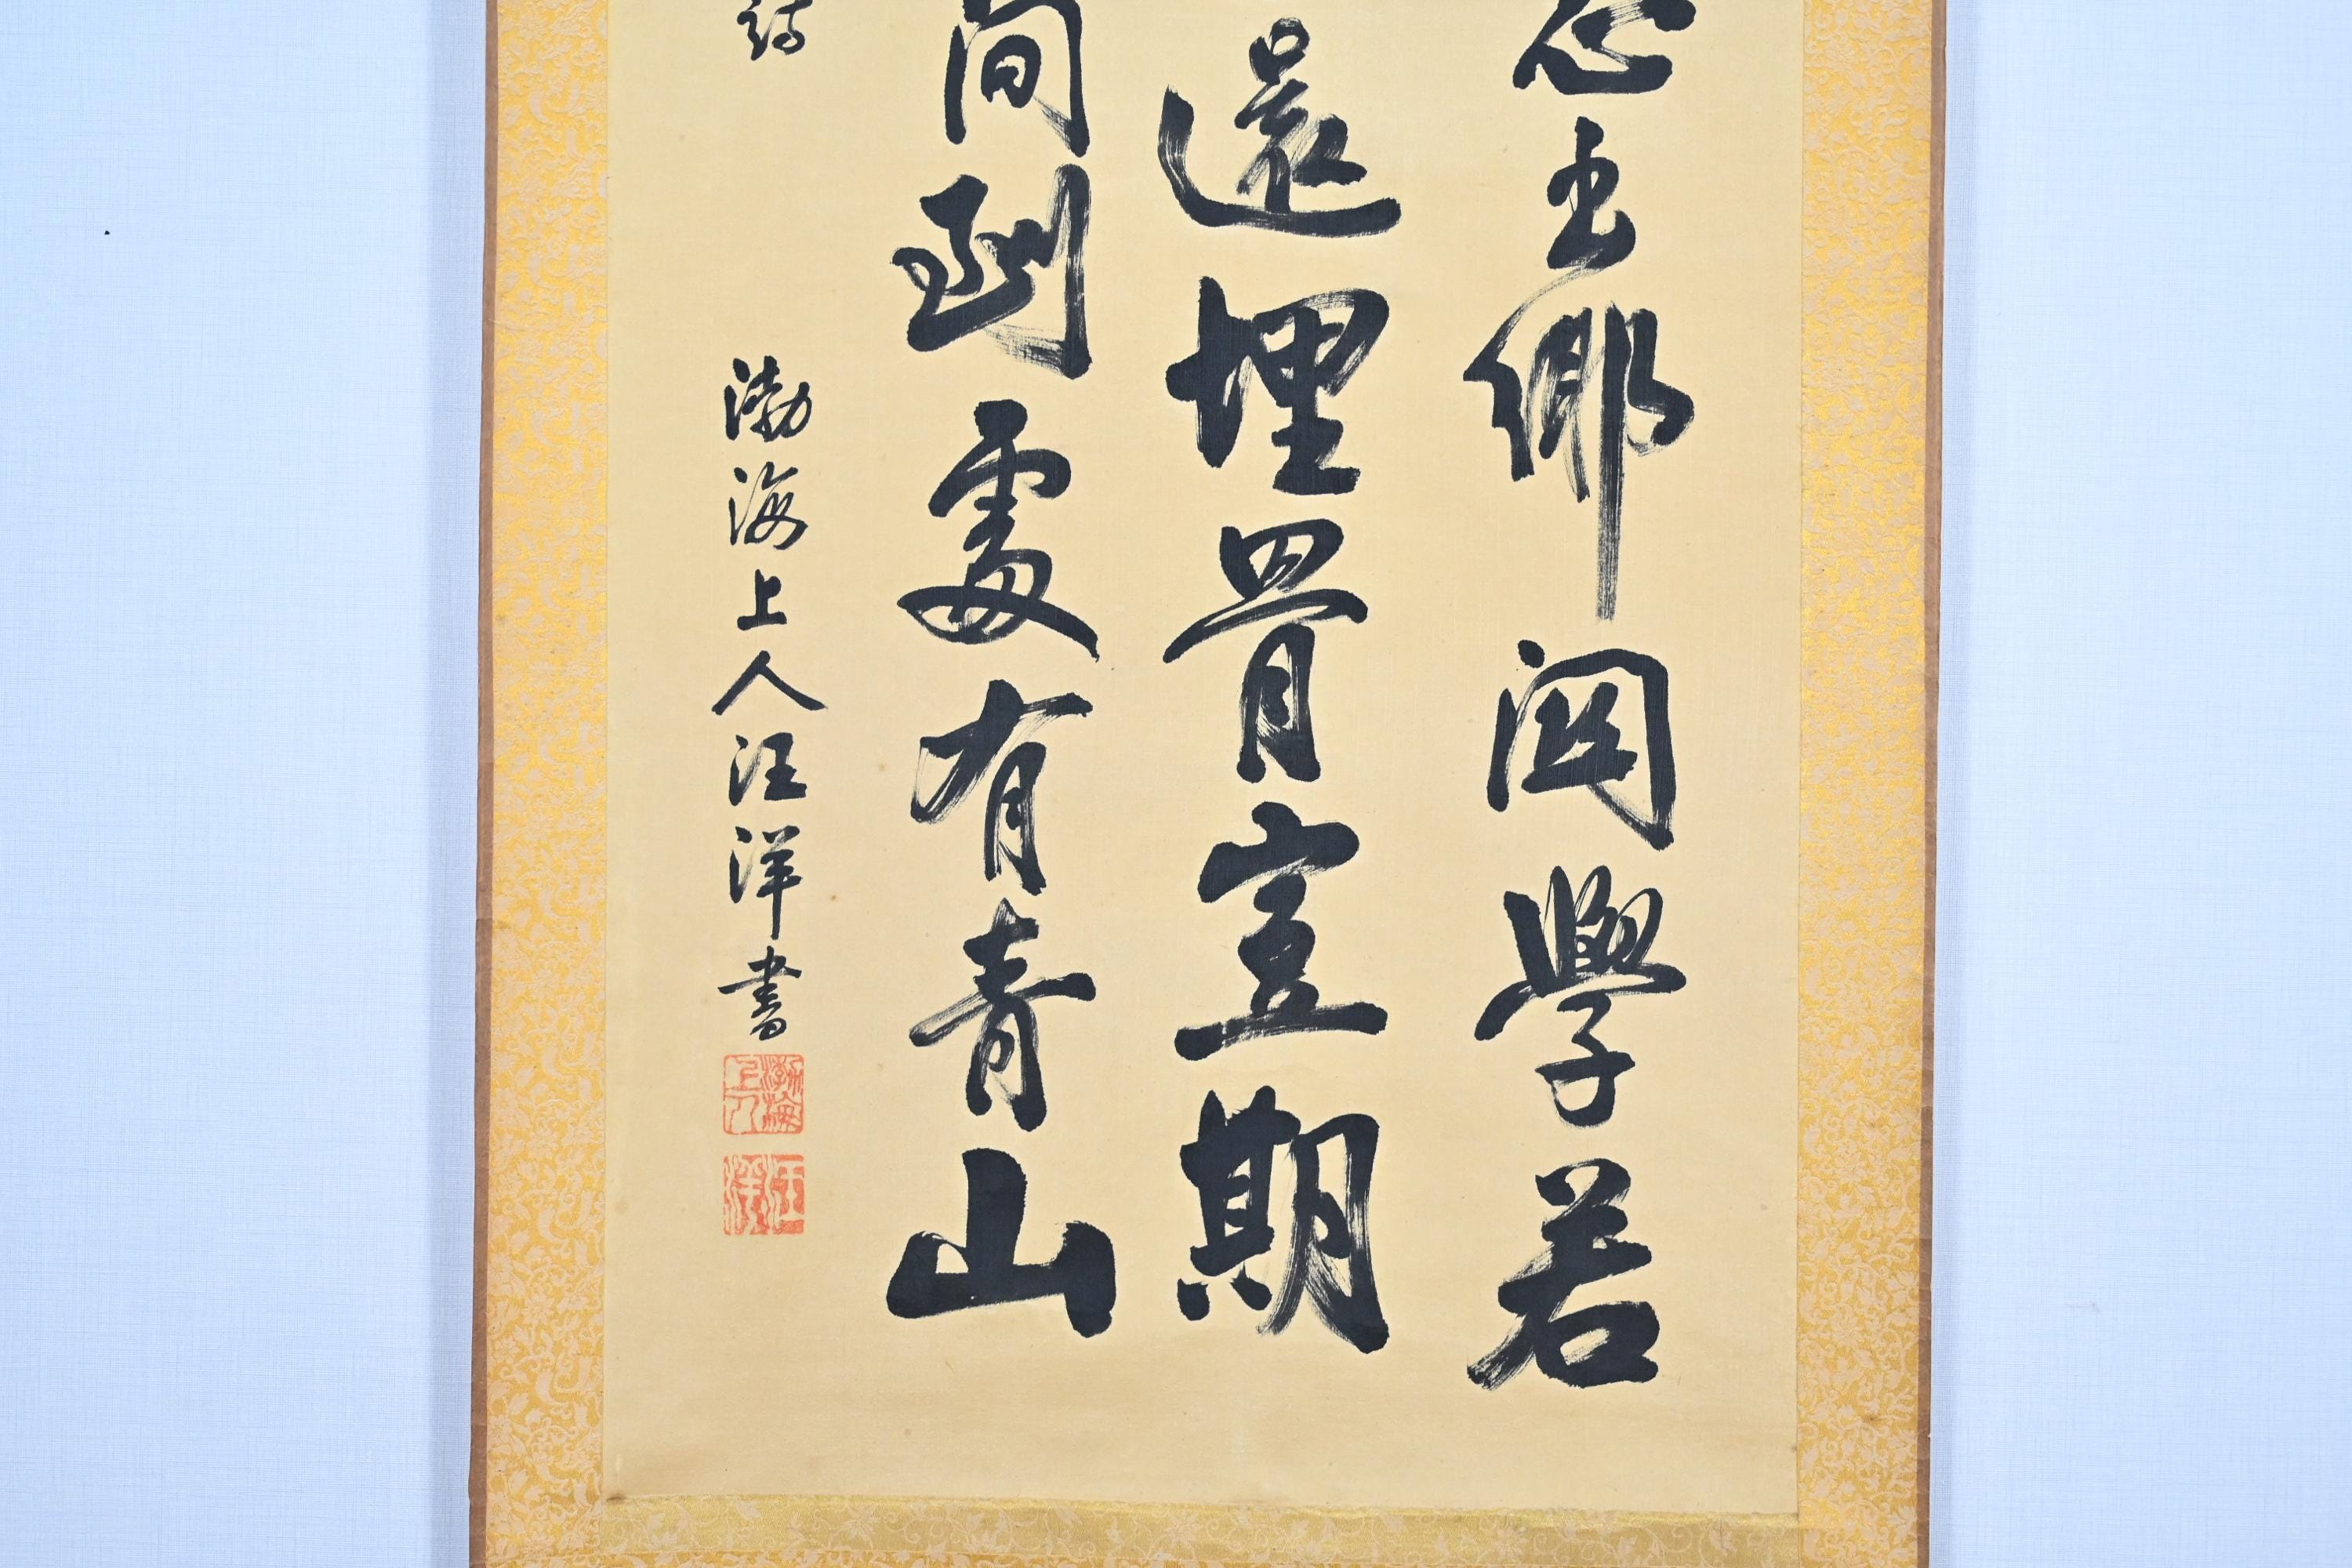 志出鄉關學若
還埋骨豈期
間到處有青山
詩
渤海上人汪洋書
渤海上人
汪洋